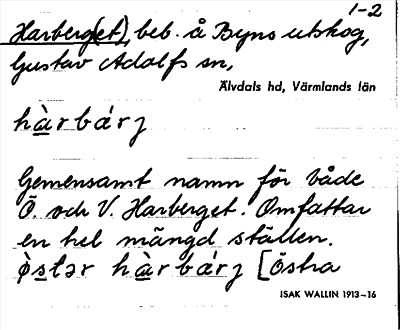 1-2
Harberg(et), beb. å Byns utskog,
Gustav Adolfs sn,
Älvdals hd, Värmlands län
hàrbárj
Gemensamt namn för både
Ö. och V. Harberget. Omfattar
en hel mängd ställen.
ò̀stər hàrbárj [östra
ISAK WALLIN 1913–16